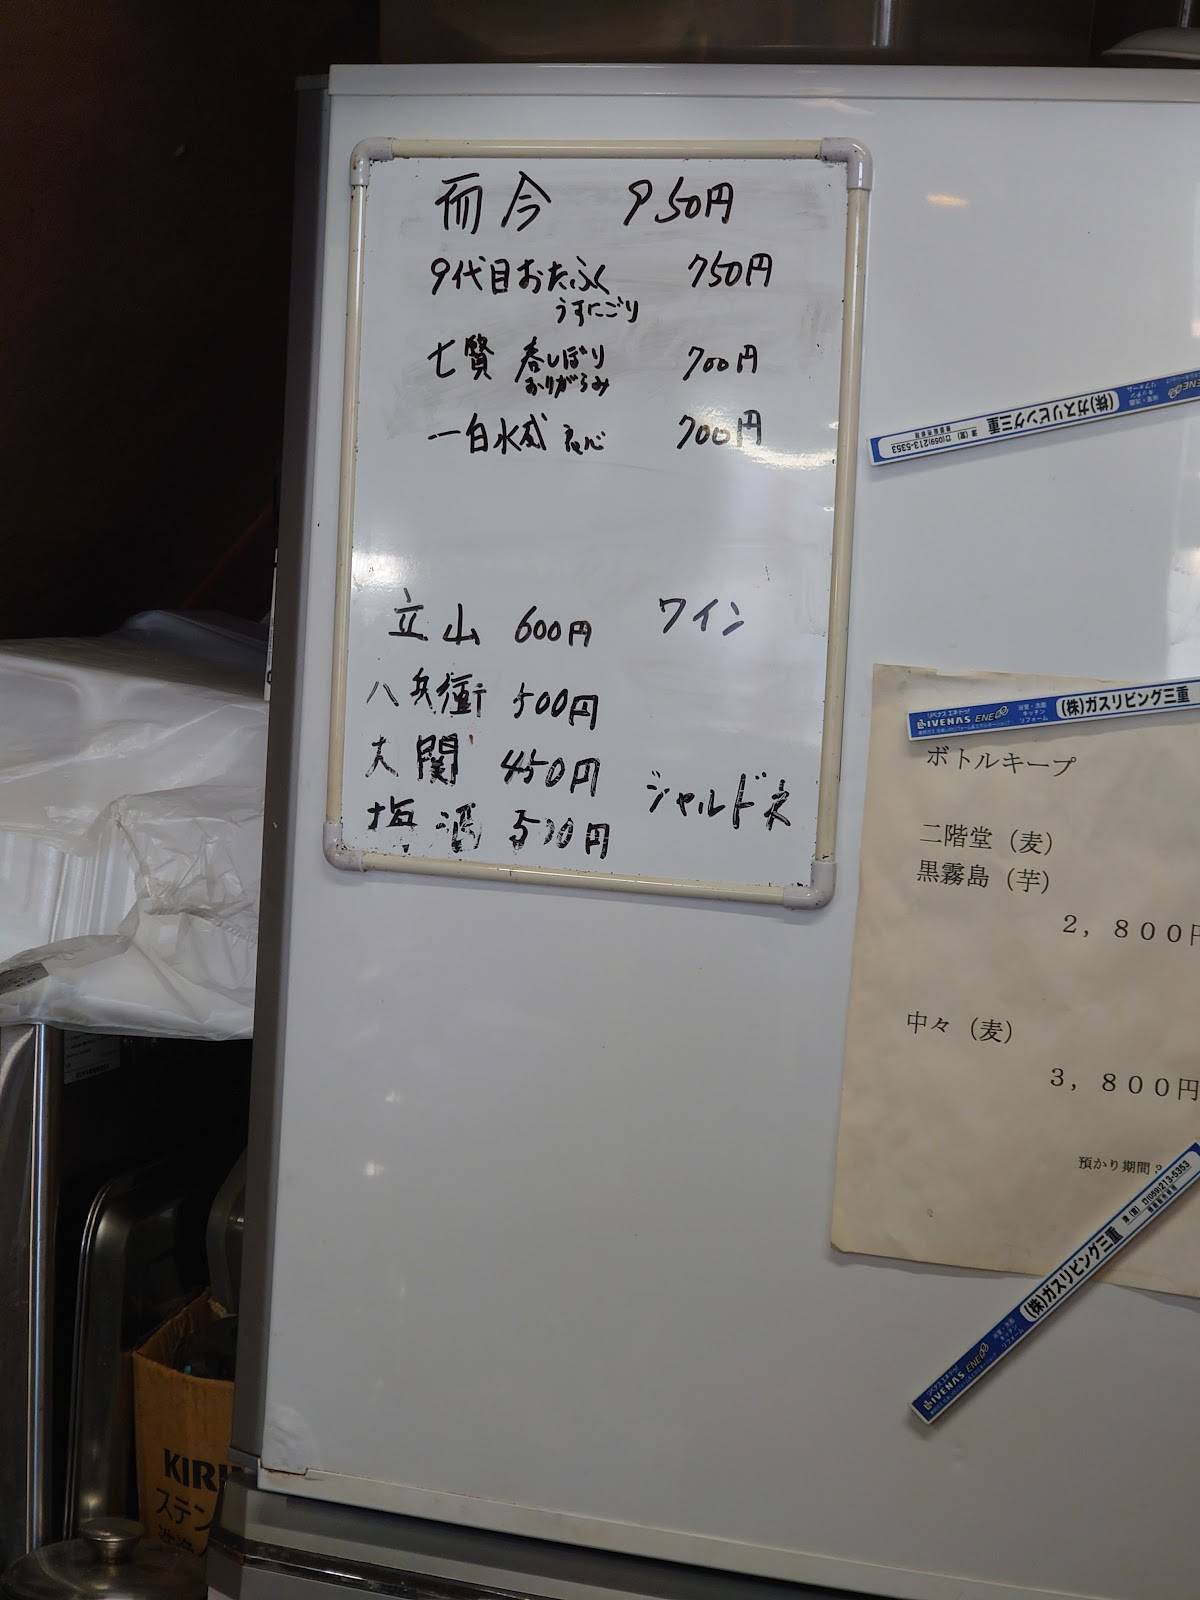 而今 950円
9代目おたふく 750円
うすにごり
七賢 春しぼり 700円
おりがらみ
一白水成 良心 700円
立山 600円 ワイン
八兵衛 500円
大関 450円
シャルドネ
梅酒 500円
(株)ガスリビング三重
(059)213-5353
LIVENAS ENE
浴室・洗面
キッチン
リフォーム
(株)ガスリビング三重
ボトルキープ
二階堂（麦）
黒霧島（芋）
２，８００円
中々（麦）
３，８００円
預かり期間
LIVENAS ENE
浴室・洗面
キッチン
リフォーム
(株)ガスリビング三重
(059)213-5353
KIRI
ステン